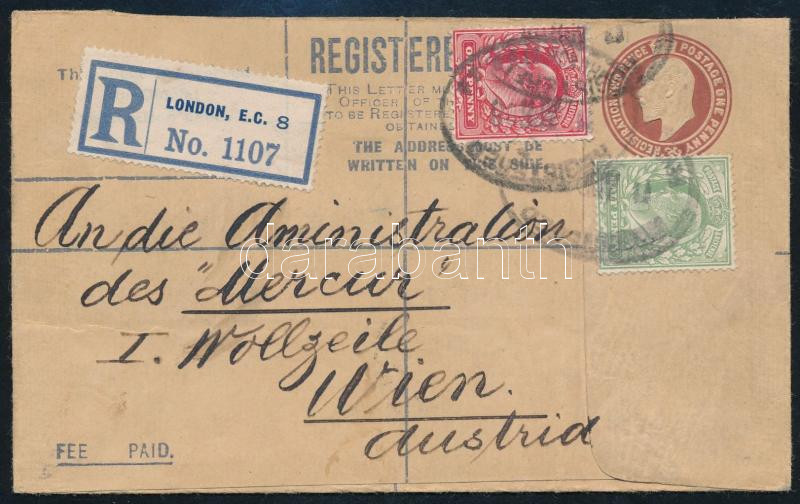 REGISTERE
Th
THIS LETTER M
OFFICER OF T
TO BE REGISTERE
OBTAINE
THE ADDRESS MUST BE
WRITTEN ON THIS SIDE.
R
LONDON, E.C. 8
No. 1107
ONE PENNY
REGISTRATION TWO PENCE
POSTAGE ONE PENNY
An die Aministration
des "Mercur"
I. Wollzeile
Wien.
Austria
FEE PAID.
darabanth